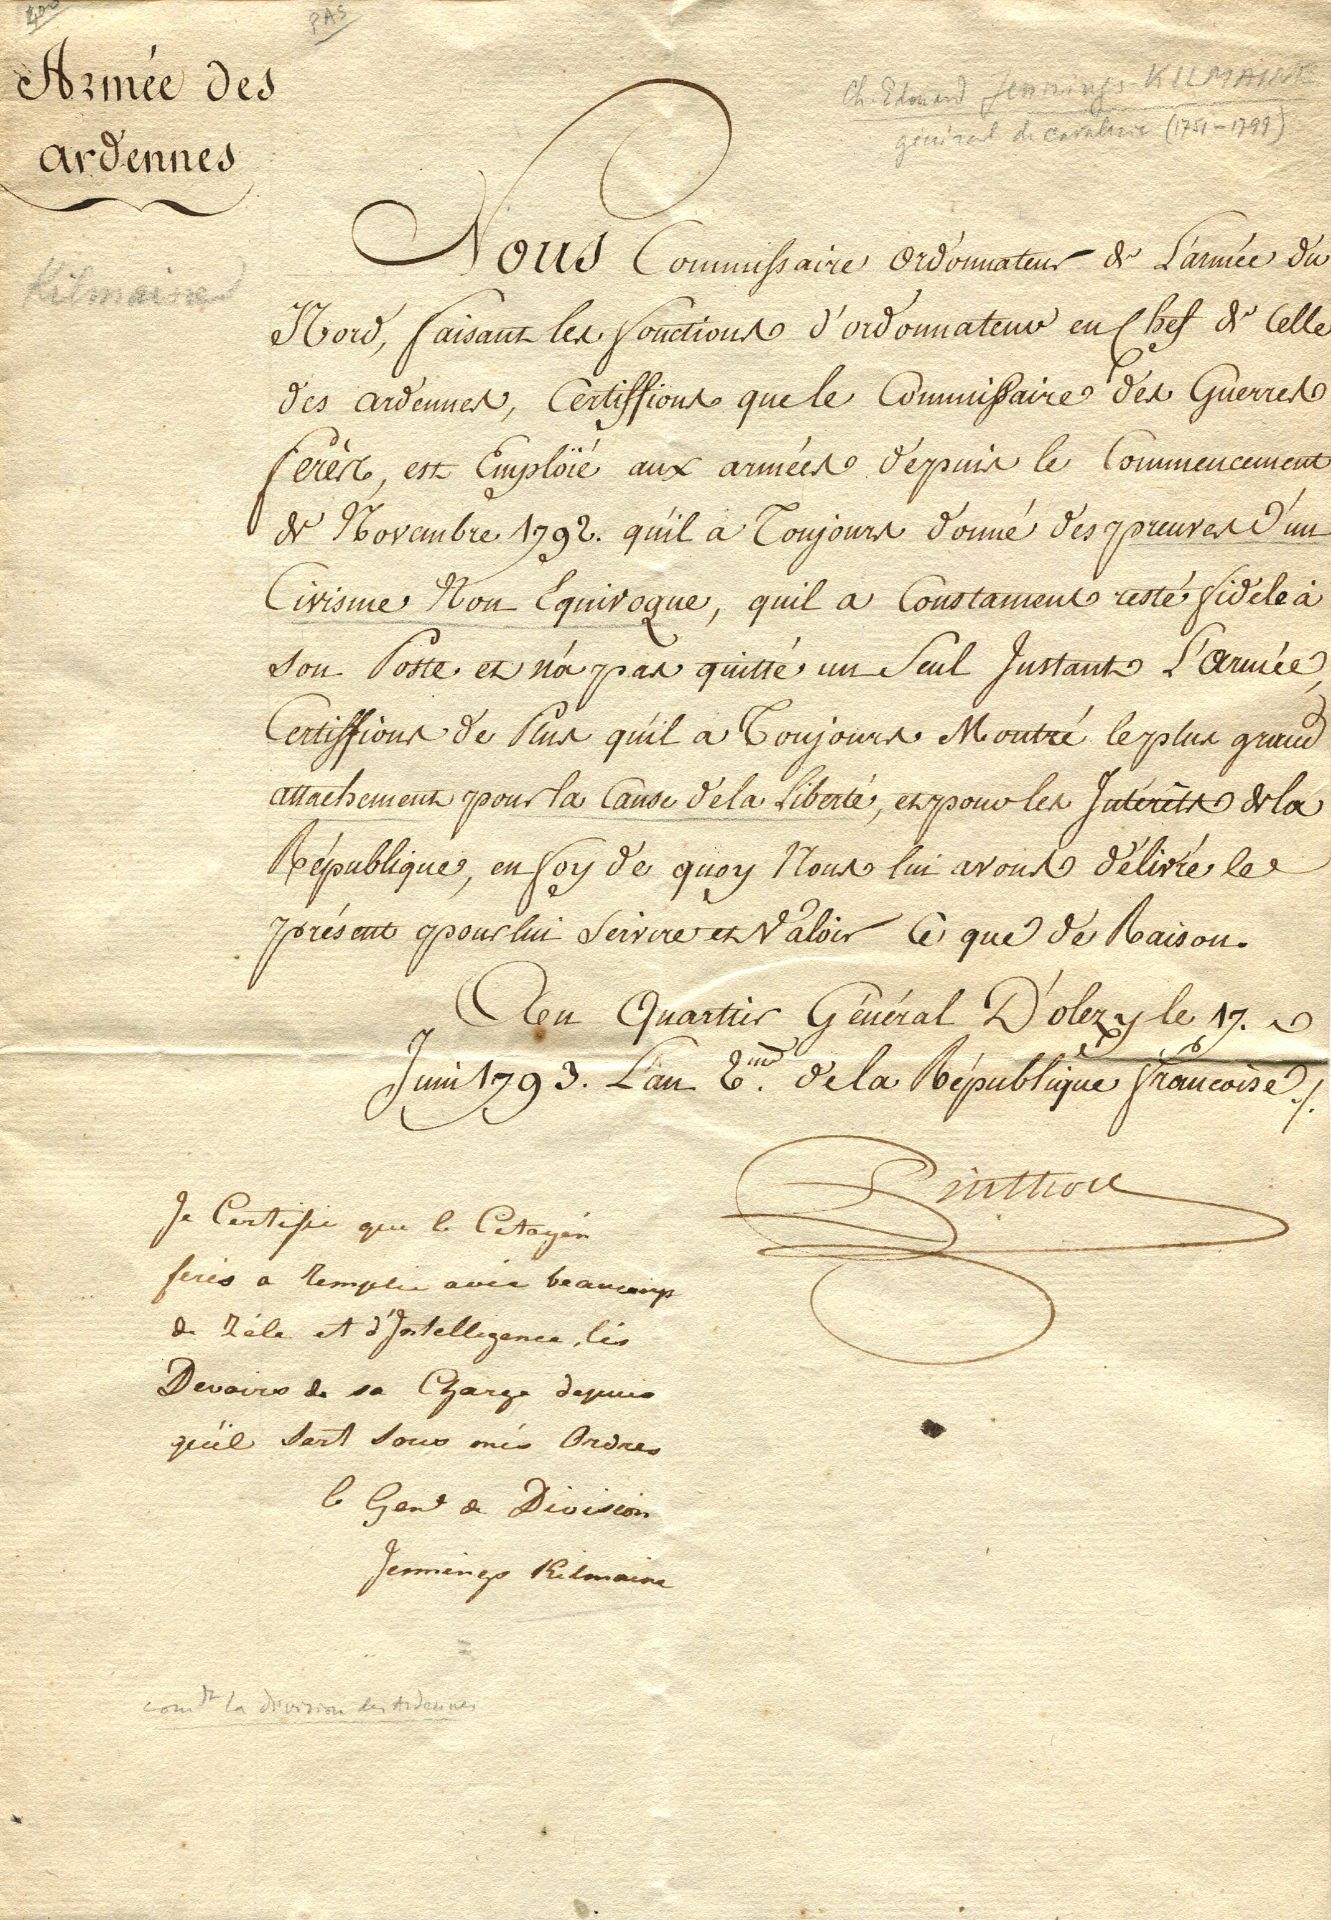 400
PAS
Armée des
ardennes
Ch. Edouard Jennings KILMAINE
général de cavalerie (1751-1799)
Kilmaine
Nous Commissaire Ordonnateur de L'armée du
Nord, faisant les fonctions d'ordonnateur en Chef de Celle
des ardennes, Certiffions que le Commissaire des Guerres
ferèz, est Emploïé aux armées depuis le Commencement
de Novembre 1792. qu'il a Toujours donné des preuves d'un
Civisme Non Equivoque, qu'il a Constament resté fidele à
son Poste et n'a pas quitté un Seul Instant L'armée,
Certiffions de Plus qu'il a Toujours Montré le plus grand
attachement pour la Cause de la Liberté, et pour les Intérêts de la
République, en foy de quoy Nous lui avons délivré le
présent pour lui Servire et Valoir Ce que de Raison.
Au Quartier Général D'olezy le 17.
Juin 1793. L'an 2.me de la République françoise ./.
Je Certifie que le Citoyen
ferés a Remplie avec beaucoup
de Zéle et d'Intelligence les
Devoirs de sa Charge depuis
qu'il sert sous més Ordres
le Genl de Division
Jennings Kilmaine
comdt la division des Ardennes